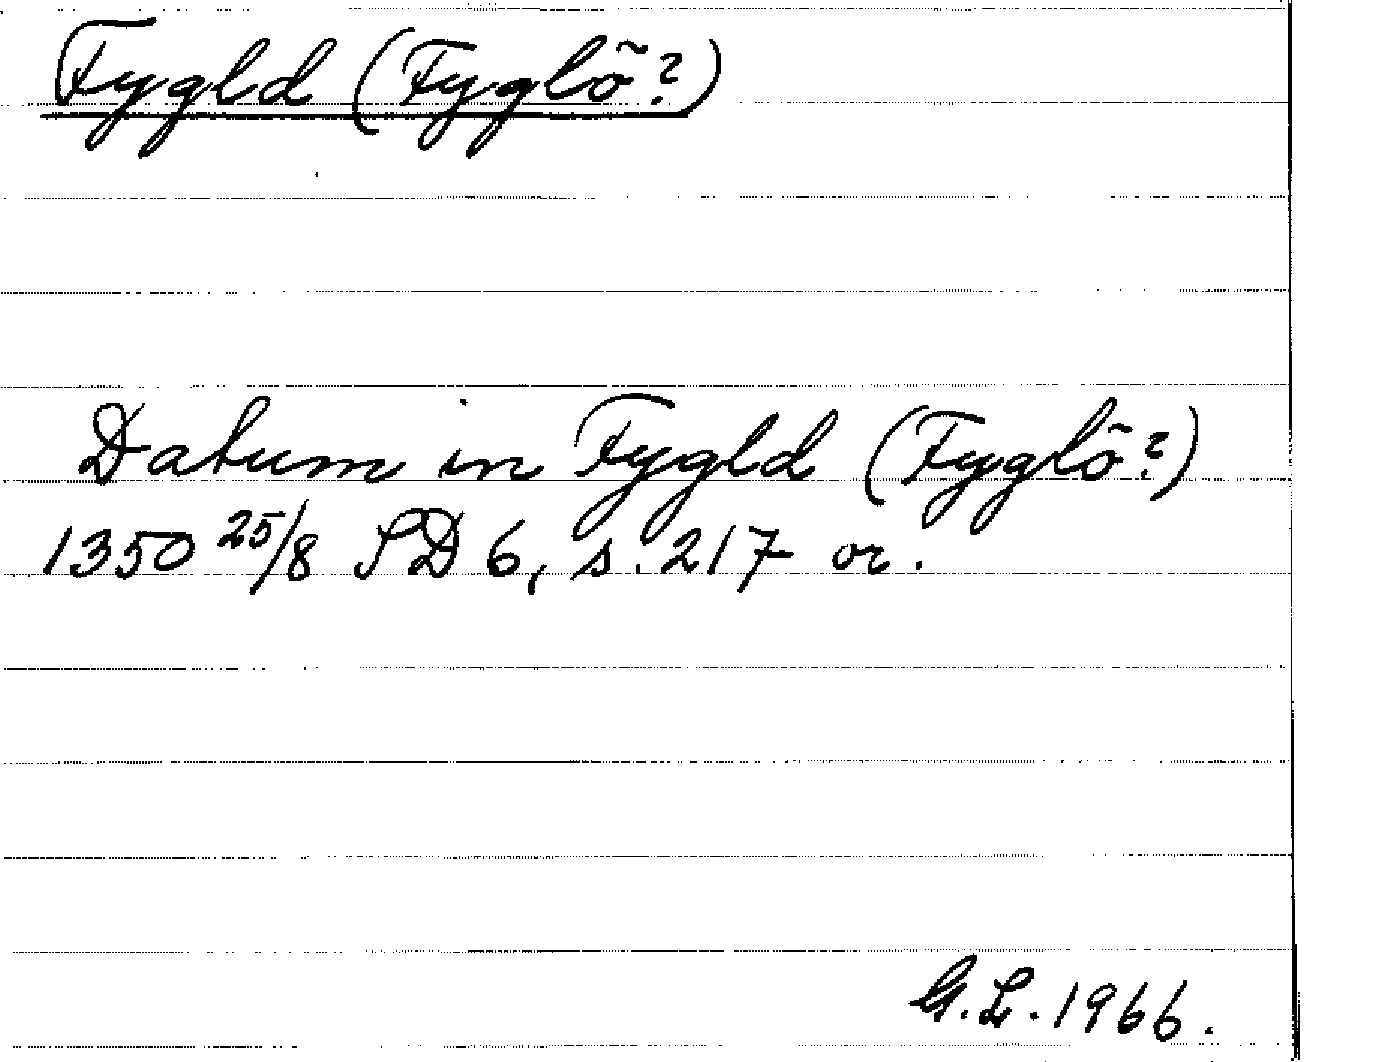 Fygld (Fyglö?)
Datum in Fygld (Fyglö?)
1350 25/8 SD 6, s. 217 or.
G.L. 1966.